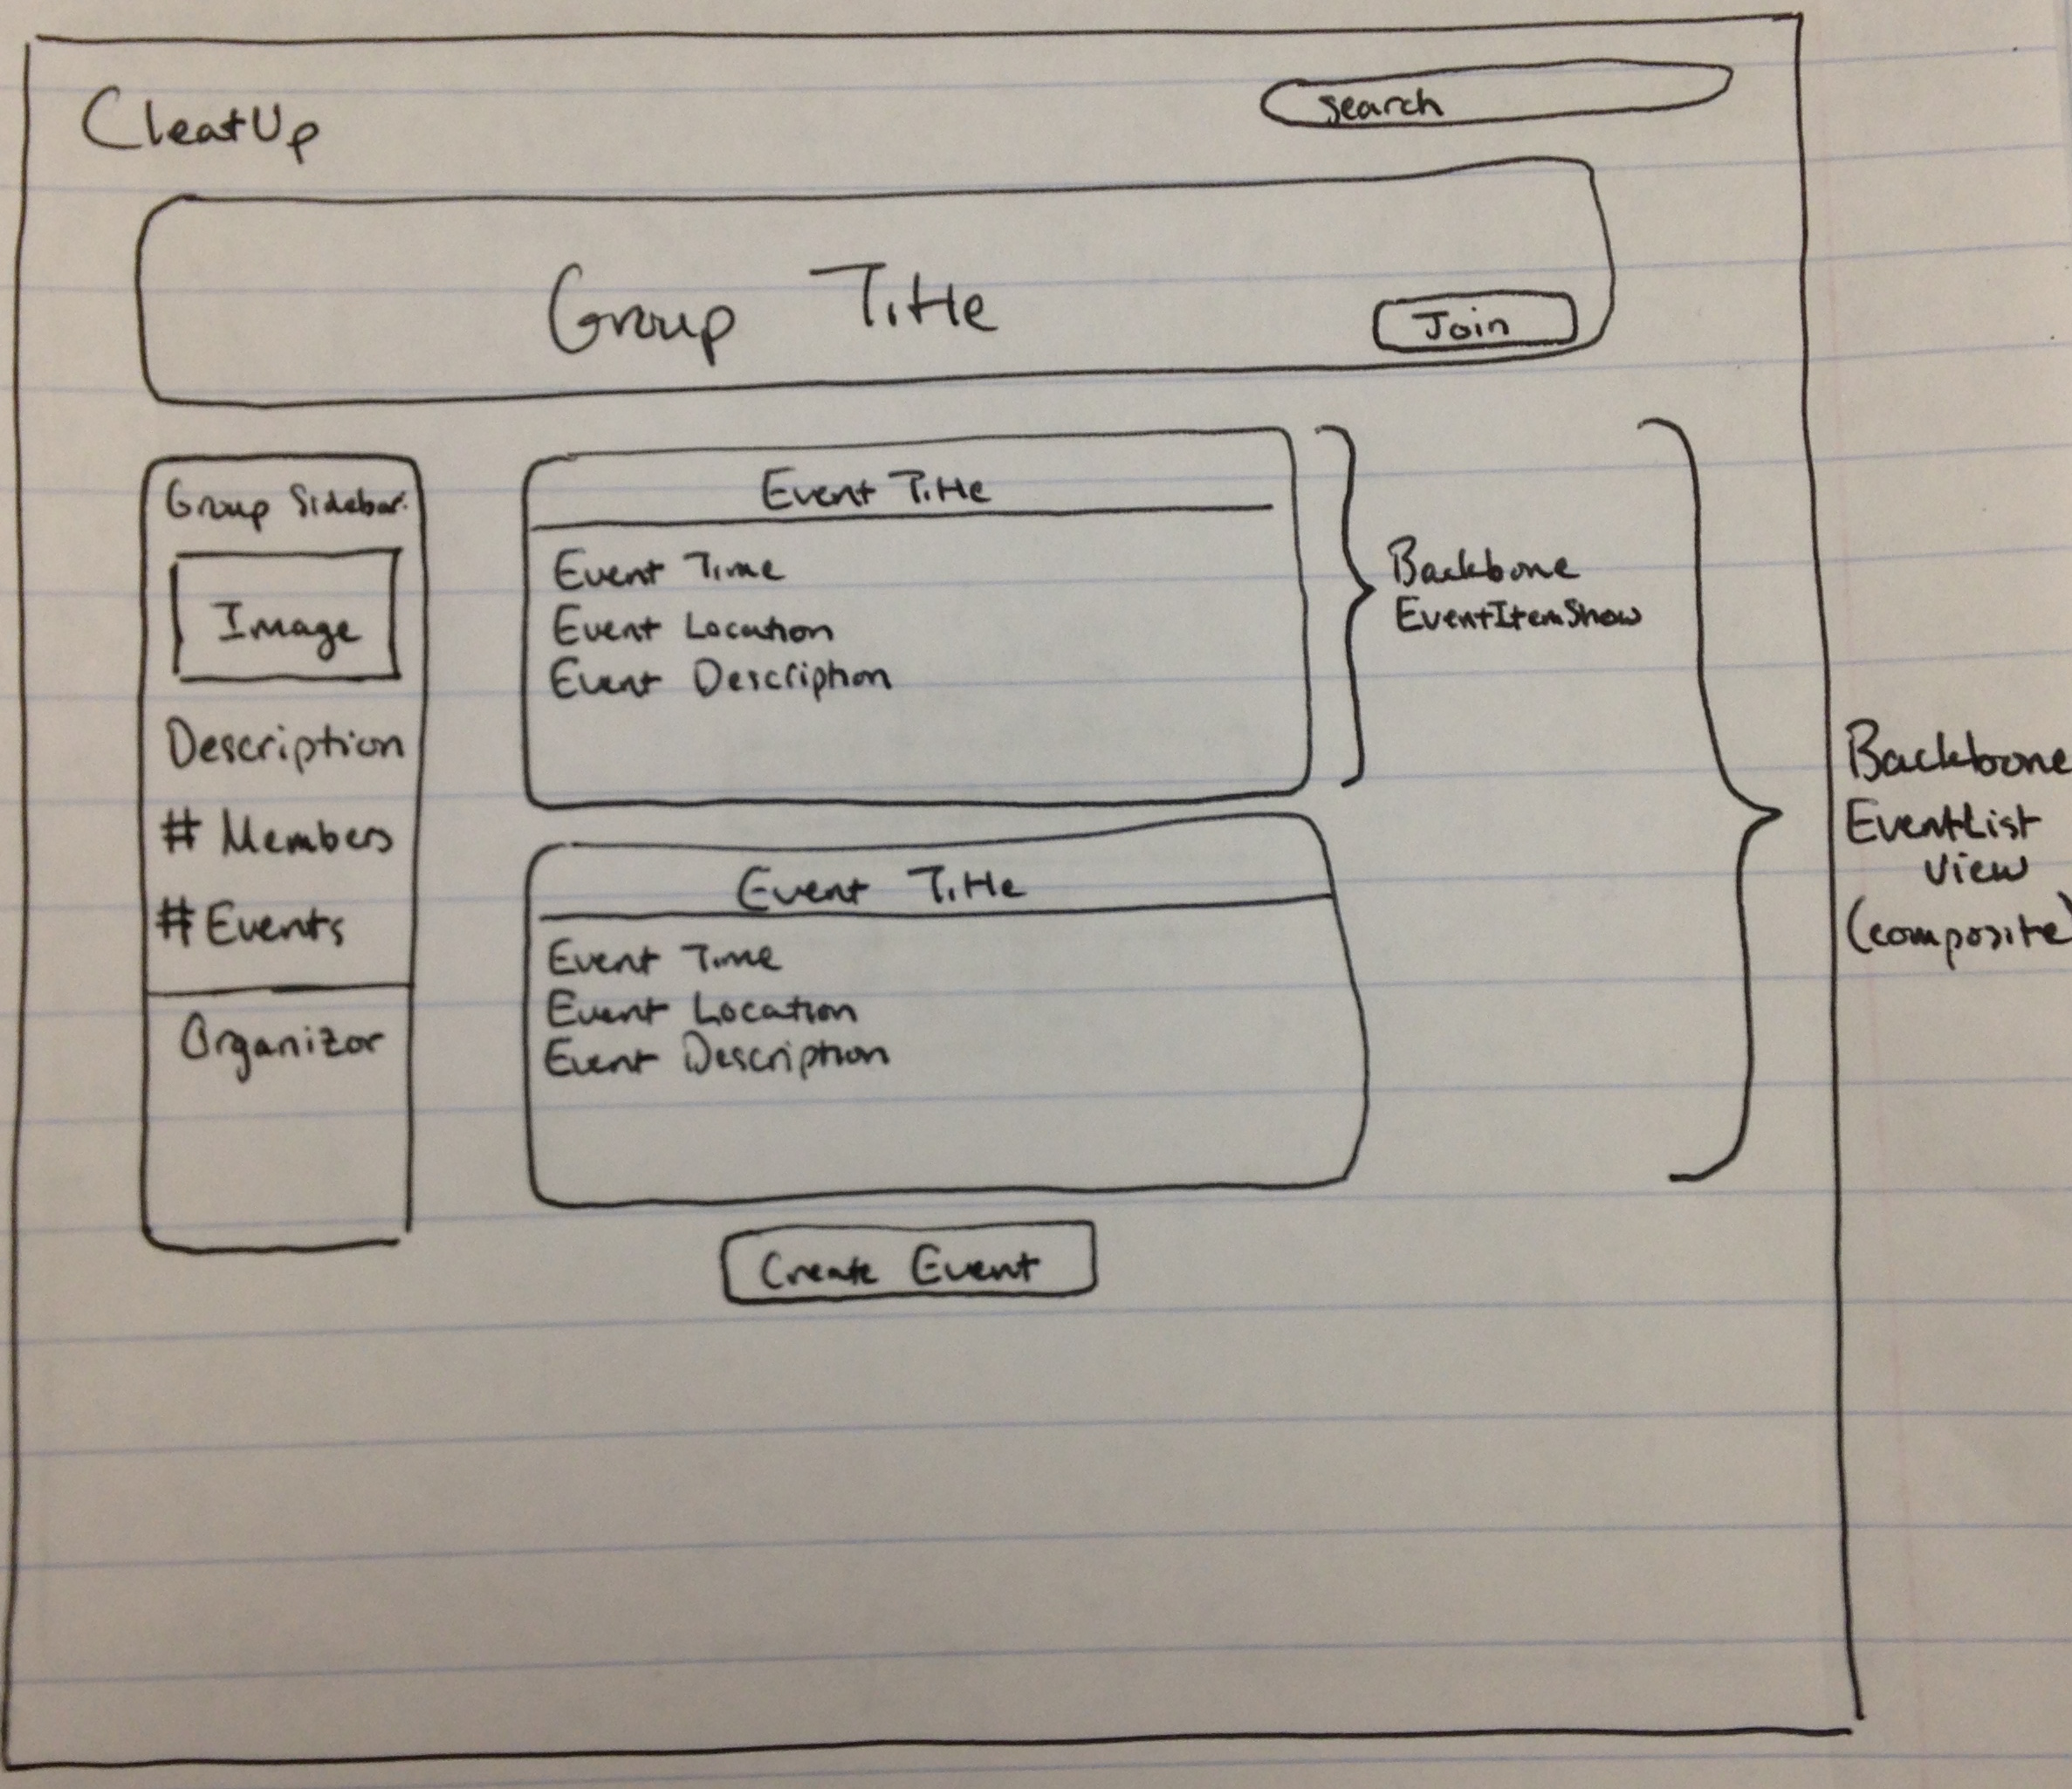 CleatUp
search
Group Title
Join
Group Sidebar.
Image
Description
# Members
# Events
Organizor
Event Title
Event Time
Event Location
Event Description
Backbone
EventItemShow
Event Title
Event Time
Event Location
Event Description
Create Event
Backbone
EventList
View
(composite)